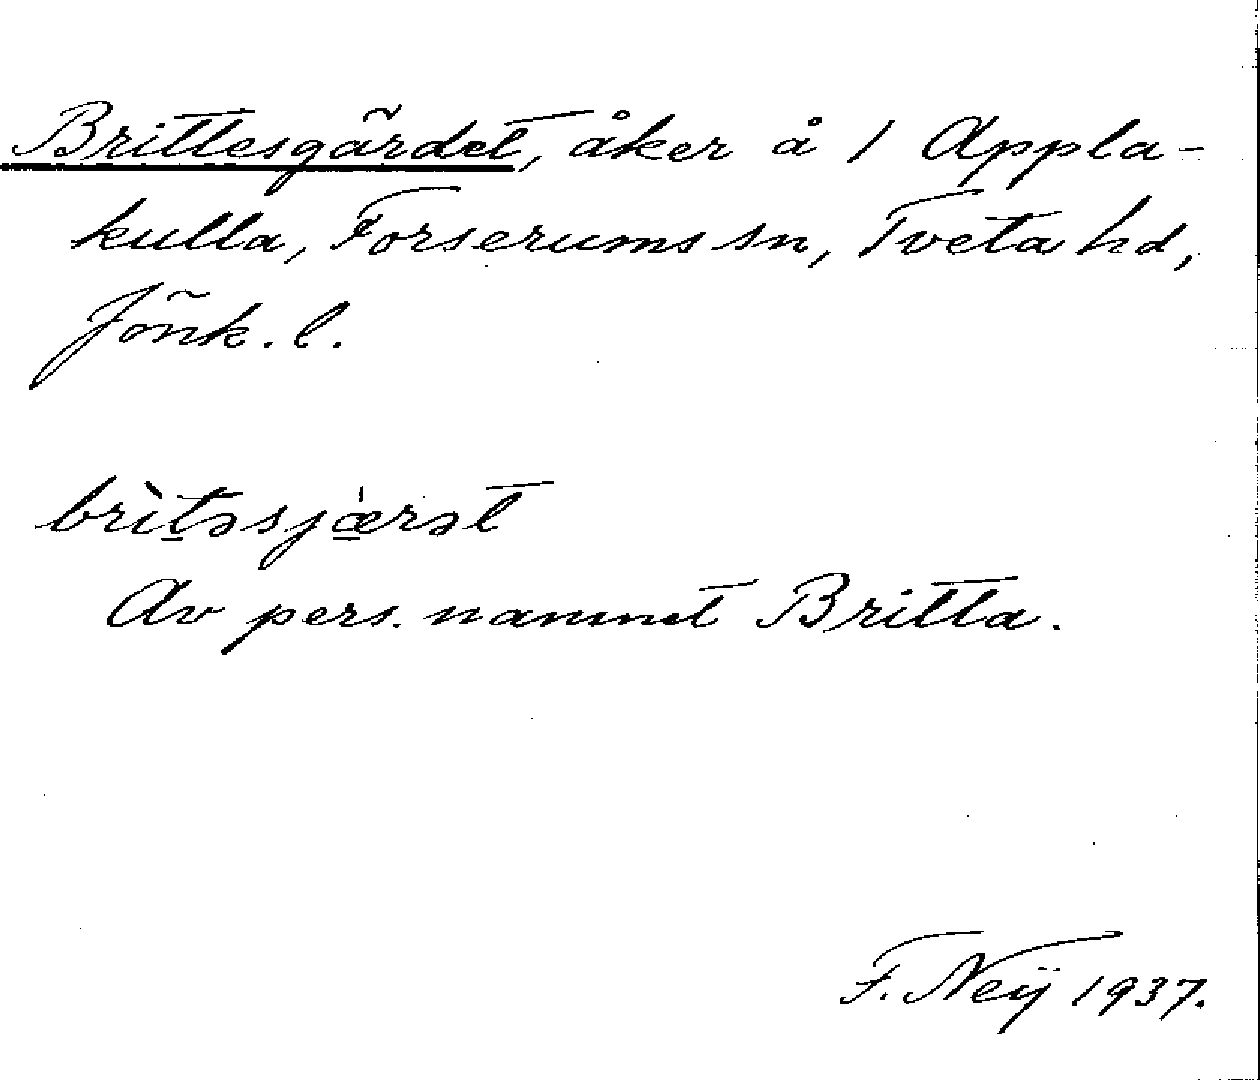 Brittesgärdet, åker å 1 Appla-
kulla, Forserums sn, Tveta hd,
Jönk. l.
brìt̠əsjæ̠̀rət
Av pers. namnet Britta.
F. Neÿ 1937.